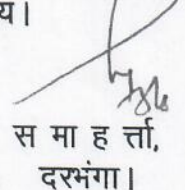 य।
स मा ह र्त्ता,
दरभंगा।